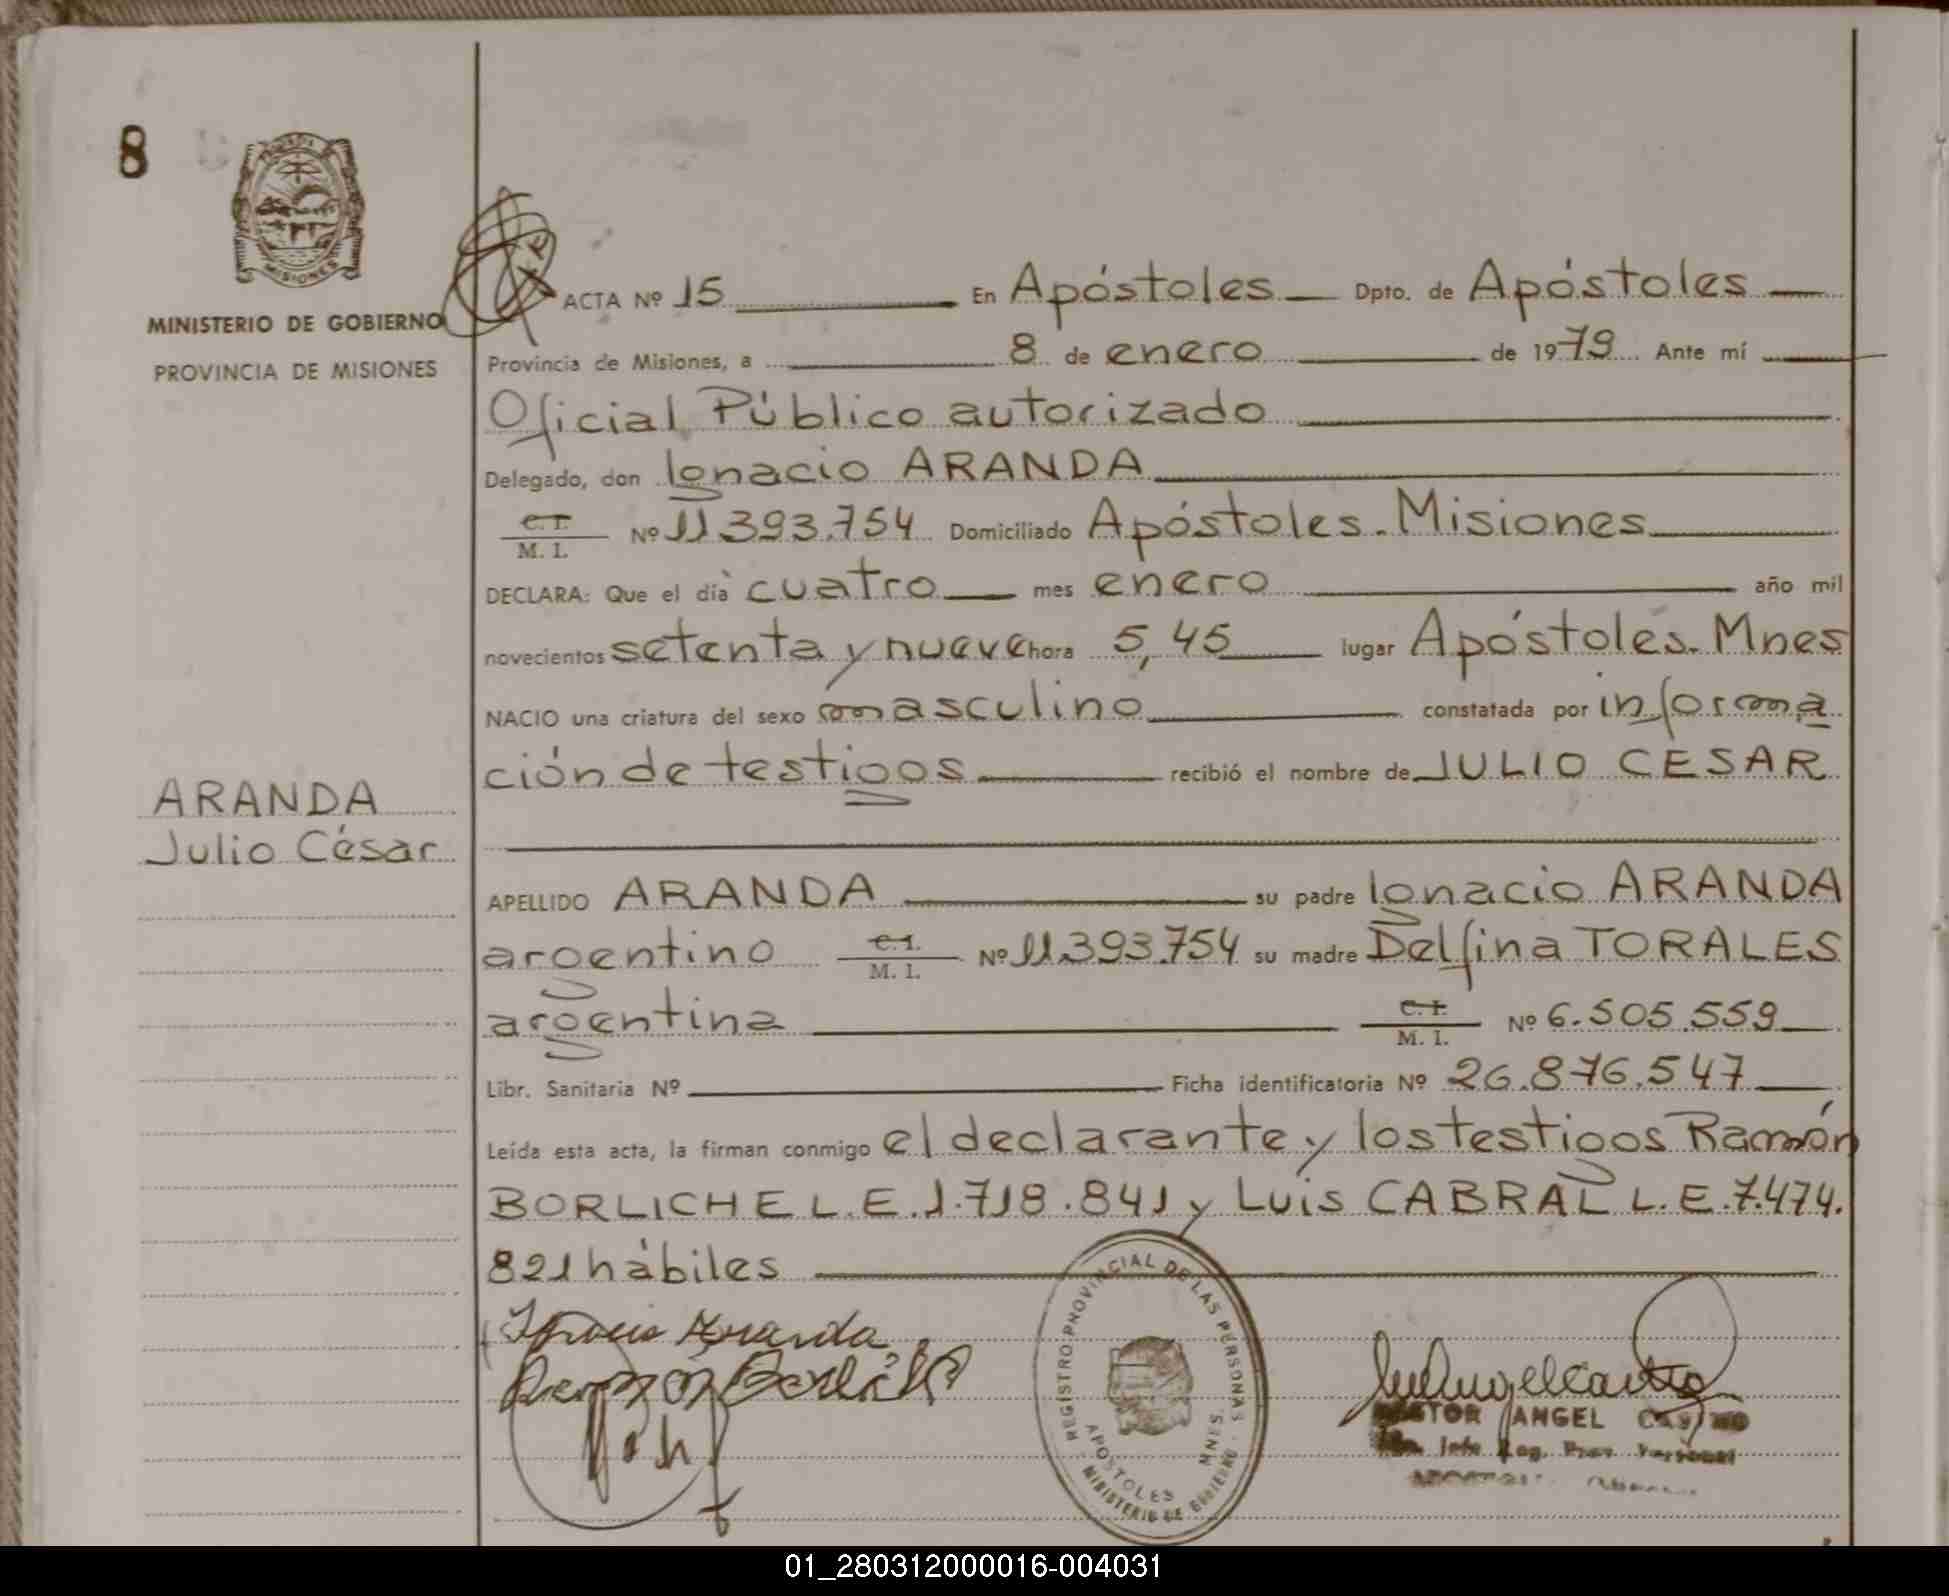 8
MISIONES
MINISTERIO DE GOBIERNO
PROVINCIA DE MISIONES
ARANDA
Julio César
ACTA Nº 15 En Apóstoles Dpto. de Apóstoles
Provincia de Misiones, a 8 de enero de 1979 Ante mí
Oficial Público autorizado
Delegado, don Ignacio ARANDA
C. I.
M. I. Nº 11.393.754 Domiciliado Apóstoles. Misiones
DECLARA: Que el día cuatro mes enero año mil
novecientos setenta y nueve hora 5,45 lugar Apóstoles. Mnes
NACIO una criatura del sexo masculino constatada por informa
ción de testigos recibió el nombre de JULIO CESAR
APELLIDO ARANDA su padre Ignacio ARANDA
argentino C. I. M. I. Nº 11.393.754 su madre Delfina TORALES
argentina C. I. M. I. Nº 6.505.559
Libr. Sanitaria Nº Ficha identificatoria Nº 26.876.547
Leída esta acta, la firman conmigo el declarante y los testigos Ramón
BORLICHE L.E. 1.718.841 y Luis CABRAL L.E. 7.474.
821 hábiles
REGISTRO PROVINCIAL DE LAS PERSONAS
APOSTOLES MNES.
MINISTERIO DE GOBIERNO
ANGEL
01_280312000016-004031